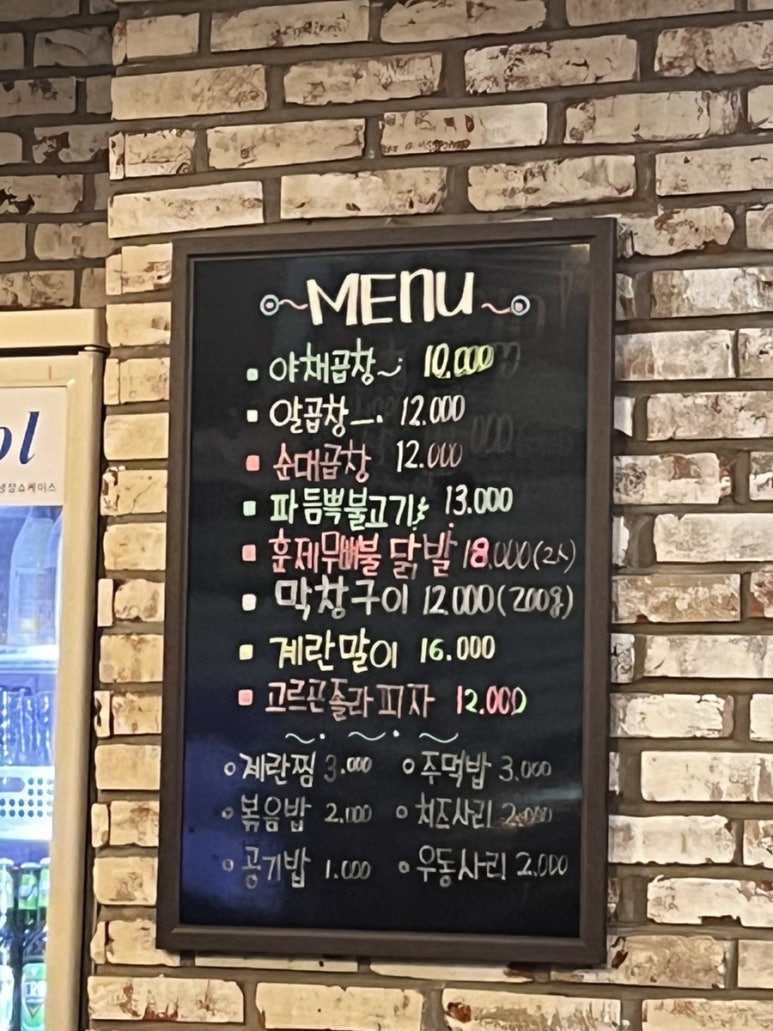 MENU
야채곱창 10.000
알곱창 12.000
순대곱창 12.000
파듬뿍불고기 13.000
훈제무뼈불닭발 18.000(2人)
막창구이 12.000(200g)
계란말이 16.000
고르곤졸라피자 12.000
계란찜 3.000 주먹밥 3.000
볶음밥 2.000 치즈사리 2.000
공기밥 1.000 우동사리 2.000
ol
냉장쇼케이스